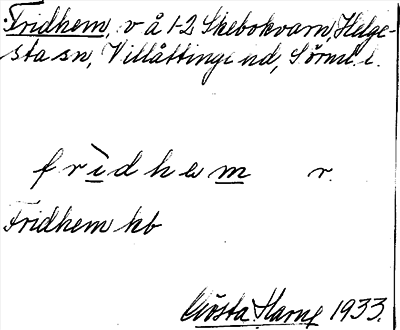 Fridhem, v å 1-2 Skebokvarn, Helge-
sta sn, Villåttinge hd, Sörml. l.
frìdhem r.
Fridhem kb
Gösta Harng 1933.